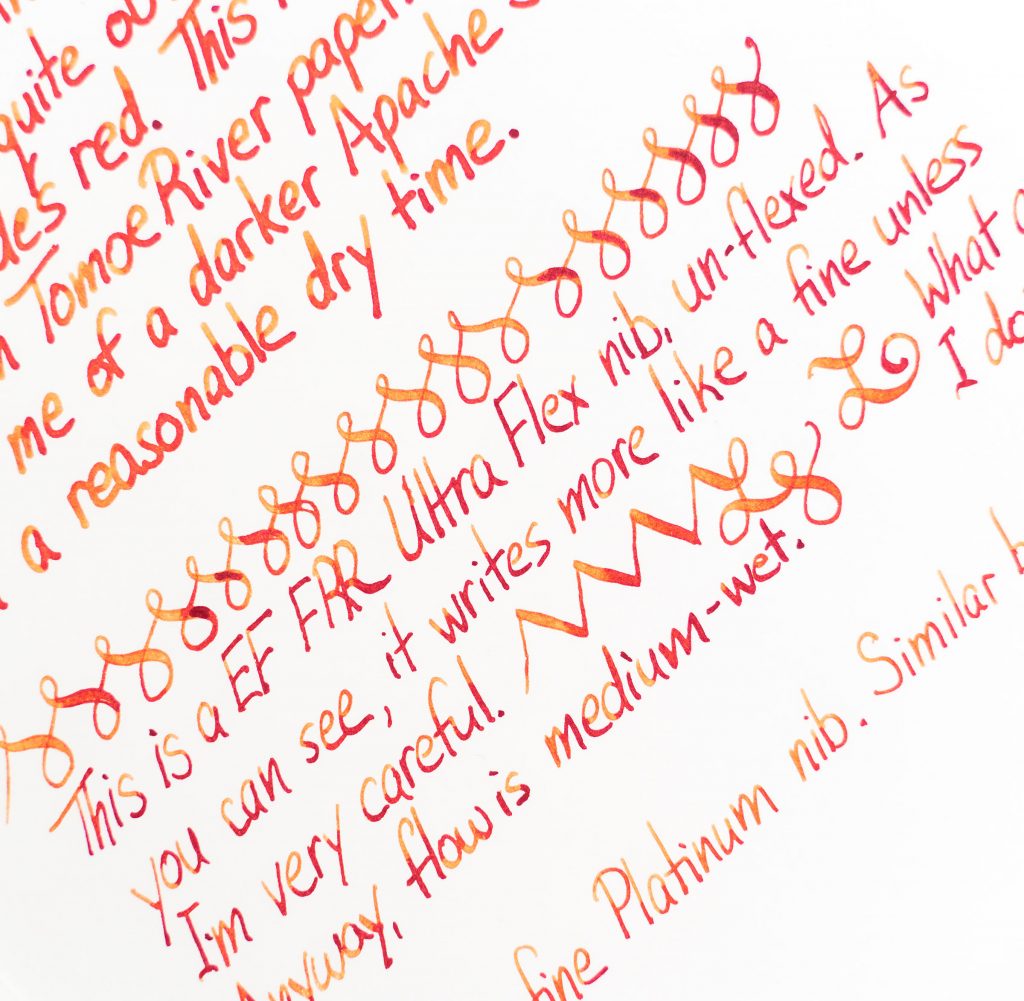 quite
red. This
Tomoe River paper
me of a darker Apache
a reasonable dry time.
This is a EF FPR Ultra Flex nib, un-flexed. As
you can see, it writes more like a fine unless
I'm very careful. What
Anyway, flow is medium-wet. I do
fine Platinum nib. Similar